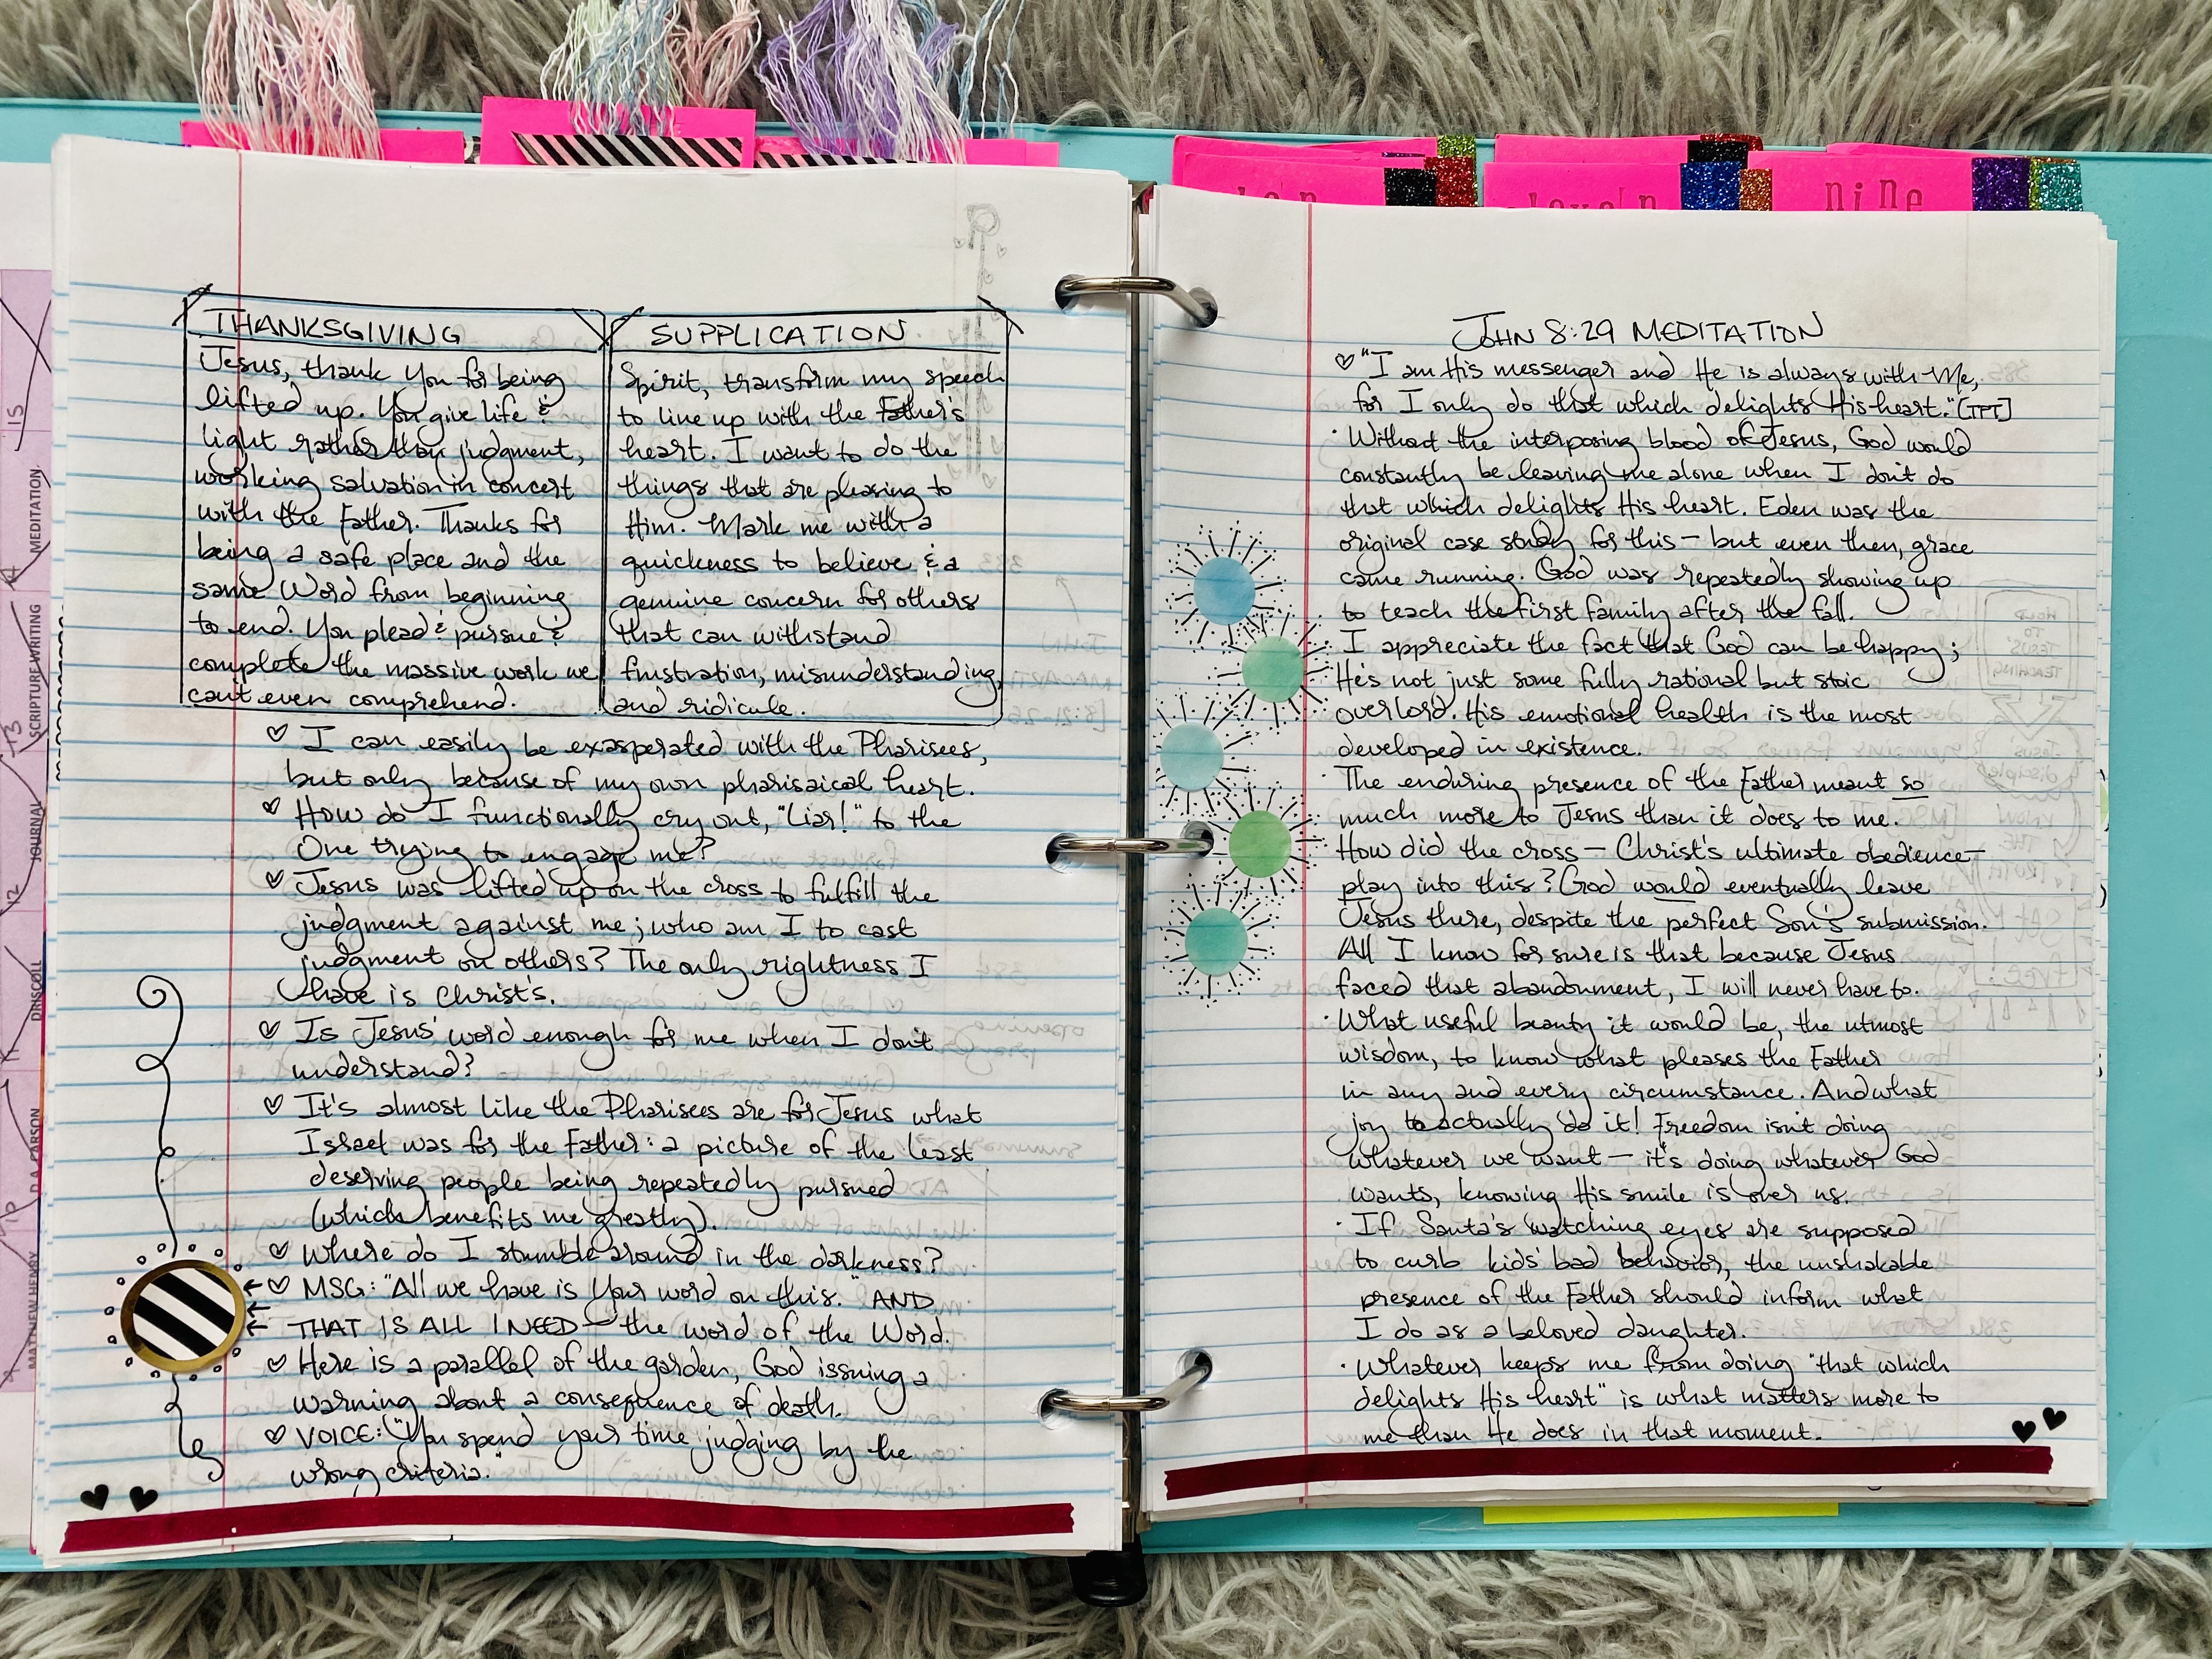 THANKSGIVING
Jesus, thank You for being
lifted up. You give life &
light rather than judgment,
working salvation in concert
with the Father. Thanks for
being a safe place and the
same Word from beginning
to end. You plead & pursue &
complete the massive work we
can't even comprehend.
SUPPLICATION
Spirit, transform my speech
to line up with the Father's
heart. I want to do the
things that are pleasing to
Him. Mark me with a
quickness to believe & a
genuine concern for others
that can withstand
frustration, misunderstanding,
and ridicule.
♡ I can easily be exasperated with the Pharisees,
but only because of my own pharisaical heart.
♡ How do I functionally cry out, "Liar!" to the
One trying to engage me?
♡ Jesus was lifted up on the cross to fulfill the
judgment against me; who am I to cast
judgment on others? The only rightness I
have is Christ's.
♡ Is Jesus' word enough for me when I don't
understand?
♡ It's almost like the Pharisees are for Jesus what
Israel was for the Father: a picture of the least
deserving people being repeatedly pursued
(which benefits me greatly).
♡ Where do I stumble around in the darkness?
♡ MSG: "All we have is Your word on this." AND
THAT IS ALL I NEED — the word of the Word.
♡ Here is a parallel of the garden, God issuing a
warning about a consequence of death.
♡ VOICE: "You spend your time judging by the
wrong criteria."
JOHN 8:29 MEDITATION
♡ "I am His messenger and He is always with Me,
for I only do that which delights His heart." [TPT]
· Without the interposing blood of Jesus, God would
constantly be leaving me alone when I don't do
that which delights His heart. Eden was the
original case study for this — but even then, grace
came running. God was repeatedly showing up
to teach the first family after the fall.
· I appreciate the fact that God can be happy;
He's not just some fully rational but stoic
overlord. His emotional health is the most
developed in existence.
· The enduring presence of the Father meant so
much more to Jesus than it does to me.
How did the cross — Christ's ultimate obedience —
play into this? God would eventually leave
Jesus there, despite the perfect Son's submission.
All I know for sure is that because Jesus
faced that abandonment, I will never have to.
· What useful beauty it would be, the utmost
wisdom, to know what pleases the Father
in any and every circumstance. And what
joy to actually do it! Freedom isn't doing
whatever we want — it's doing whatever God
wants, knowing His smile is over us.
· If Santa's watching eyes are supposed
to curb kids' bad behavior, the unshakable
presence of the Father should inform what
I do as a beloved daughter.
· Whatever keeps me from doing "that which
delights His heart" is what matters more to
me than He does in that moment.
nine
15
MEDITATION
14
SCRIPTURE WRITING
13
JOURNAL
12
DRISCOLL
11
D.A. CARSON
10
MATTHEW HENRY
9